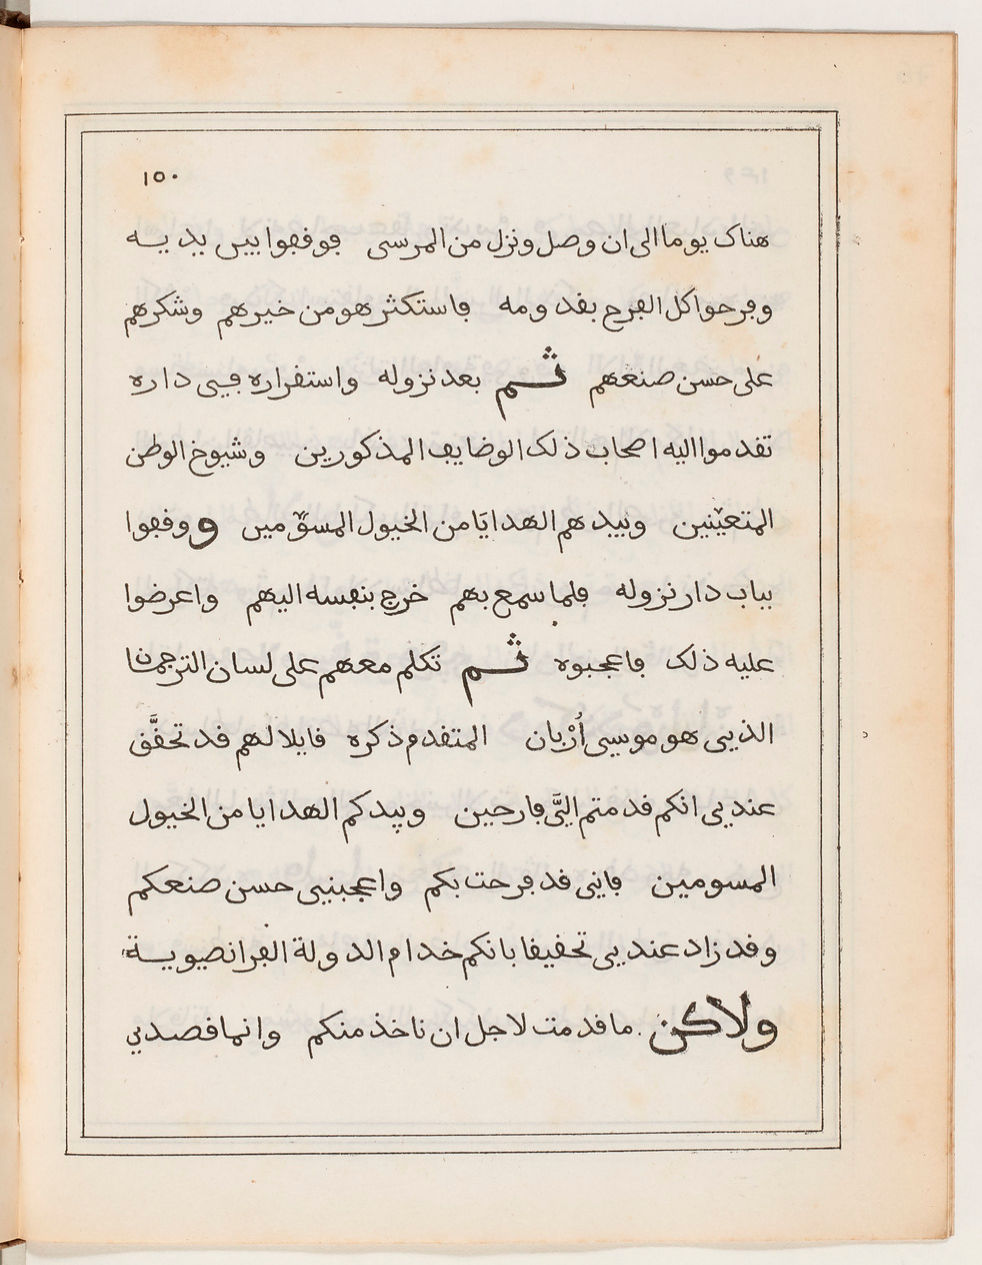 ١٥٠
هناك يوما الى ان وصل ونزل من المرسى فوقفوا بين يديه
وفرحوا كل الفرح بقدومه فاستكثر هو من خيرهم وشكرهم
على حسن صنعهم ثم بعد نزوله واستقراره فيى داره
تقدموا اليه اصحاب ذلك الوضايف المذكورين وشيوخ الوطن
المتعيّنين وبيدهم الهدايَا من الخيول المسوّمين و وقفوا
بباب دار نزوله فلما سمع بهم خرج بنفسه اليهم واعرضوا
عليه ذلك فاعجبوه ثم تكلم معهم على لسان الترجمان
الذيى هو موسيى أرْبان المتقدم ذكره قايلا لهم قد تحقَّق
عنديى انكم قدمتم اليَّى فارحين وبيدكم الهدايا من الخيول
المسومين فاينى قد فرحت بكم واعجبنيى حسن صنعكم
وقد زاد عنديى تحقيقا بانكم خدام الدولة الفرانصيوية
ولاكن ما قدمت لاجل ان ناخذ منكم وانما قصدي